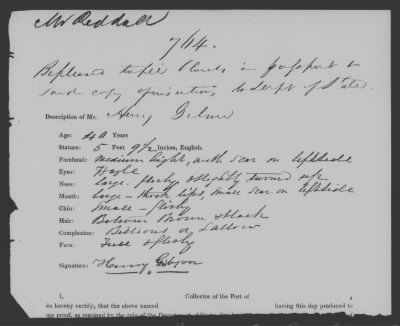 Mr Reddall
7/14.
Be pleased to fill blanks in passport &
send copy of
to Dept of State.
Description of Mr. Henry Gibson
Age: 40 Years
Stature: 5 Feet 9½ Inches, English.
Forehead: medium hight, with scar on left side
Eyes: Hazle
Nose: large, fleshy & slightly turned up
Mouth: large - thick lips, small scar on left side
Chin: small - fleshy
Hair: Between Brown & black
Complexion: Billious or Sallow
Face: Full & fleshy
Signature: Henry Gibson
I, Collector of the Port of ,
do hereby certify, that the above named having this day produced to
me proof, as required by the rule of the Department,